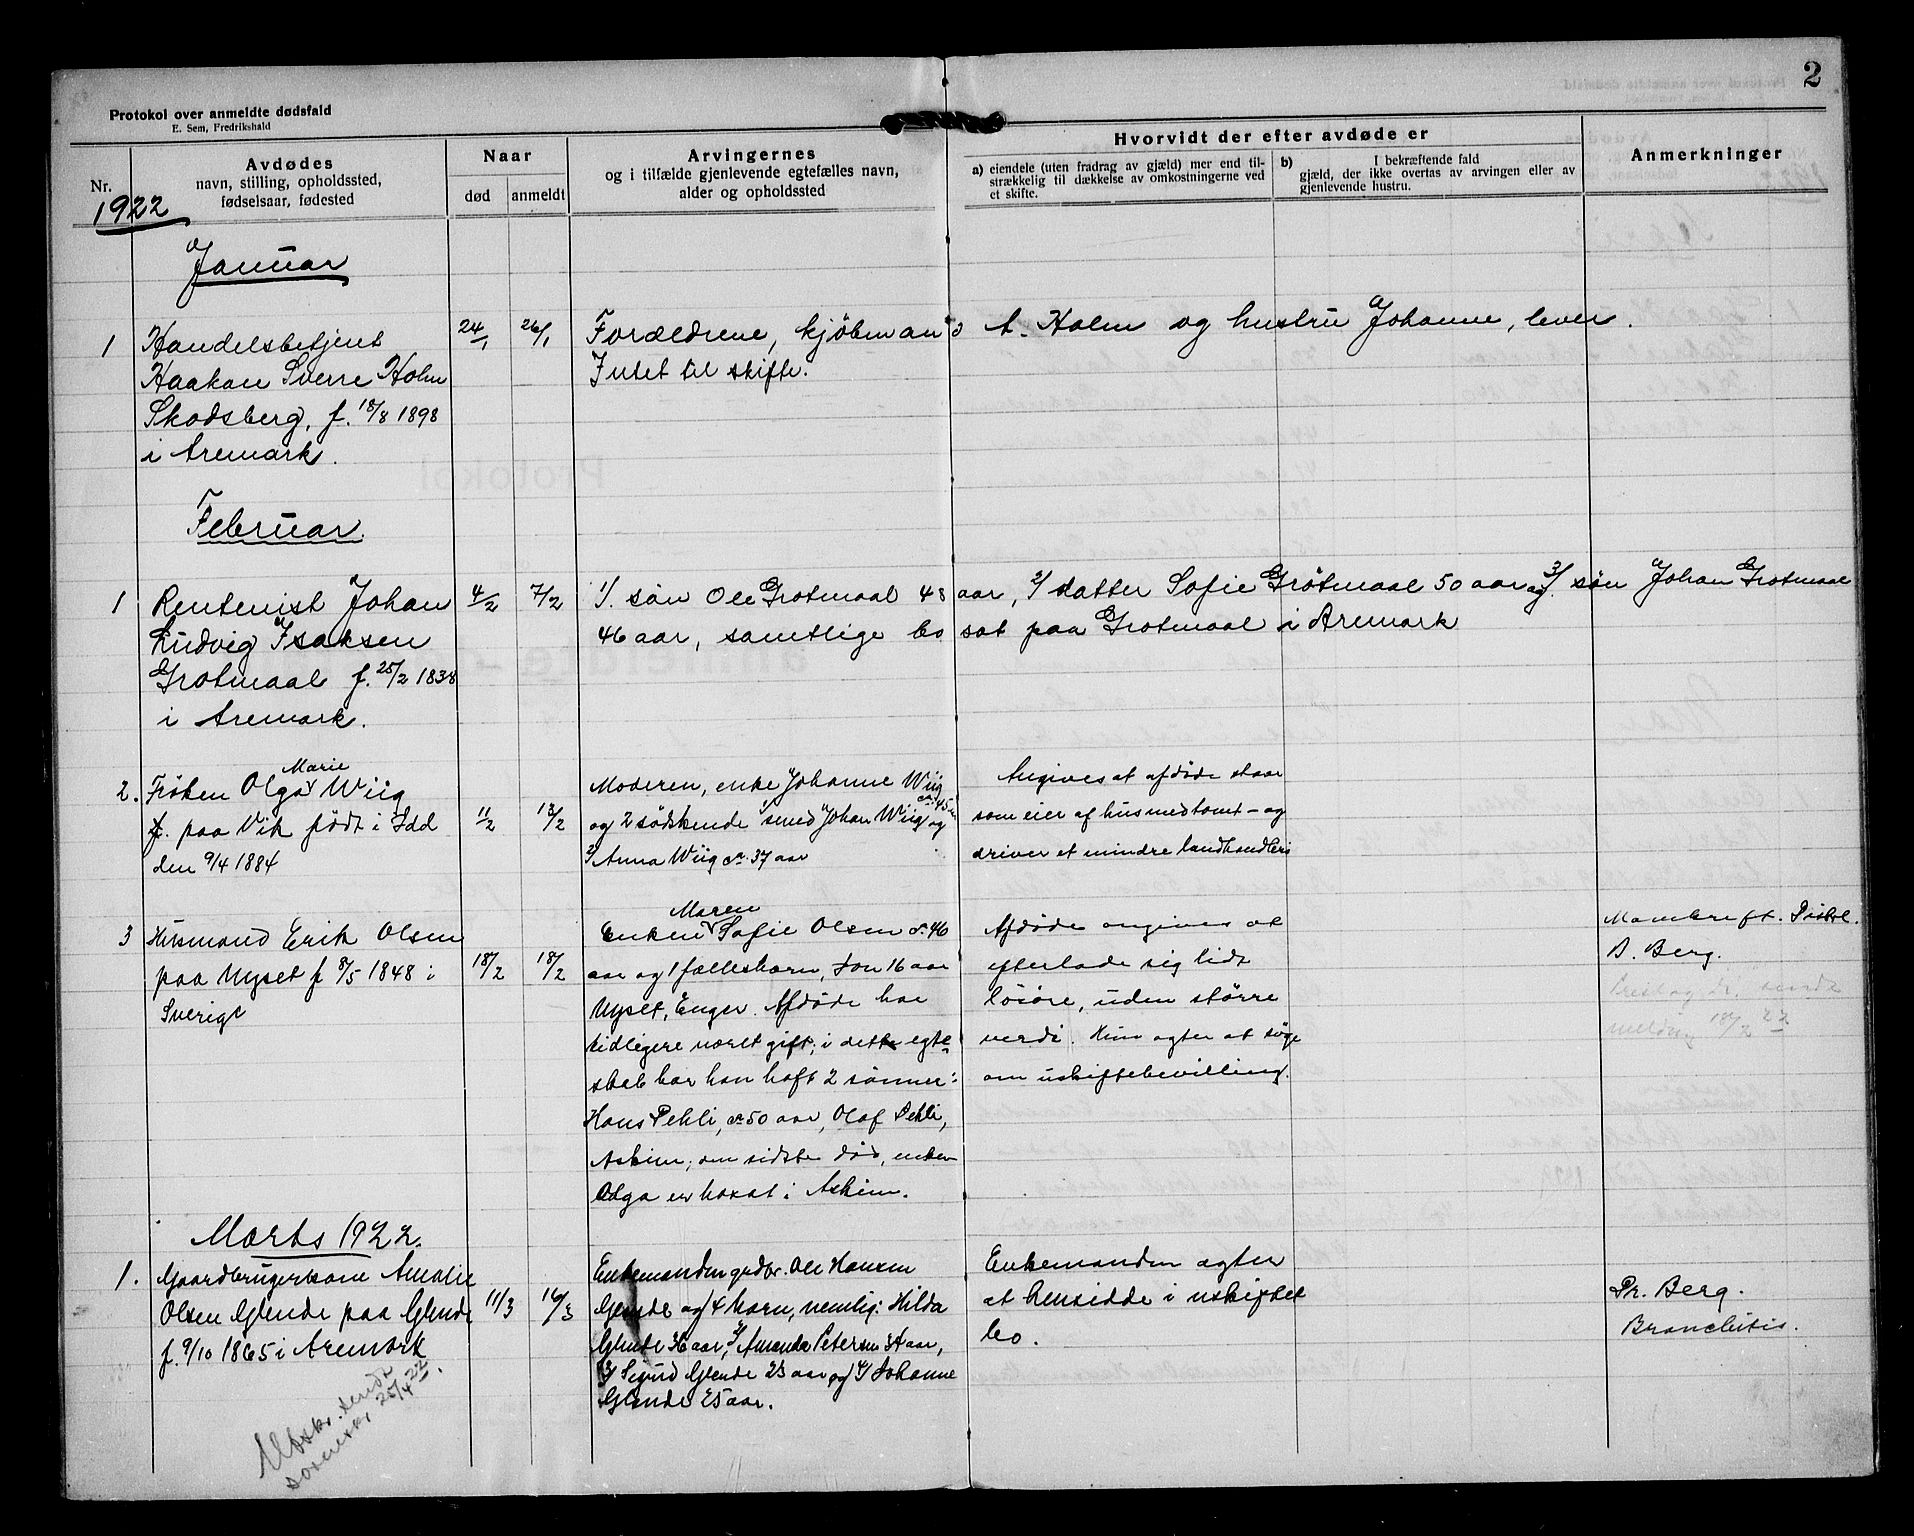 2
Protokol over anmeldte dødsfald
E. Sem, Fredrikshald
Nr.
1922
Avdødes
navn, stilling, opholdssted,
fødselsaar, fødested
Naar
død
anmeldt
Arvingernes
og i tilfælde gjenlevende egtefælles navn,
alder og opholdssted
Hvorvidt der efter avdøde er
a) eiendele (uten fradrag av gjæld) mer end til-
strækkelig til dækkelse av omkostningerne ved
et skifte.
b) I bekræftende fald
gjæld, der ikke overtas av arvingen eller av
gjenlevende hustru.
Anmerkninger
Januar
1
Handelsbetjent
Haakon Sverre Holm
Skodsberg, f. 18/8 1898
i Aremark.
24/1
26/1
Forældrene, kjøbmand A. Holm og hustru Johanne, lever.
Intet til skifte.
Februar.
1
Rentenist Johan
Ludvig Isaksen
Grotmaal f. 25/2 1838
i Aremark.
4/2
7/2
1/. søn Ole Grotmaal 48 aar, 2/ datter Sofie Grøtmaal 50 aar og 3/. søn Johan Grotmaal
46 aar, samtlige bosat paa Grotmaal i Aremark
2.
Frøken Olga Marie Wiig
f. paa Vik født i Idd
den 9/4 1884
11/2
13/2
Moderen, enke Johanne Wiig
og 2 sødskende 1/ smed Johan Wiig ca. 45 aar og
2/ Anna Wiig ca. 37 aar
Angives at afdøde staar
som eier af hus med tomt - og
driver et mindre landhandleri
3
Husmand Erik Olsen
paa Nyset f 8/5 1848 i
Sverige
18/2
18/2
Enken Maren Sofie Olsen ca. 46
aar og 1 fællesbarn, Jon 16 aar
Nyset, Enger. Afdøde har
tidligere været gift; i dette egte-
skab har han haft 2 sønner:
Hans Pehli, ca. 50 aar, Olaf Pehli,
Askim; om sidste død, enken
Olga er bosat i Askim.
Afdøde angives at
efterlade sig lidt
løsøre, uden større
verdi. Hun agter at søge
om uskiftebevilling.
B. Berg.
melding 18/2 22
Marts 1922.
1.
Gaardbrugerkone Amalie
Olsen Glende paa Glende
f. 9/10 1865 i Aremark
11/3
16/3
Enkemanden grdbr. Ole Hansen
Glende og 4 barn, nemlig: Hilda
Glende 36 aar, 2/ Amanda Petersen 34 aar,
3/ Sigurd Glende 23 aar og 4/ Johanne
Glende 25 aar.
Enkemanden agter
at hensidde i uskiftet
bo.
Dr. Berg.
Bronchitis.
Utskr. sendt
sorenskr. 25/4 22.